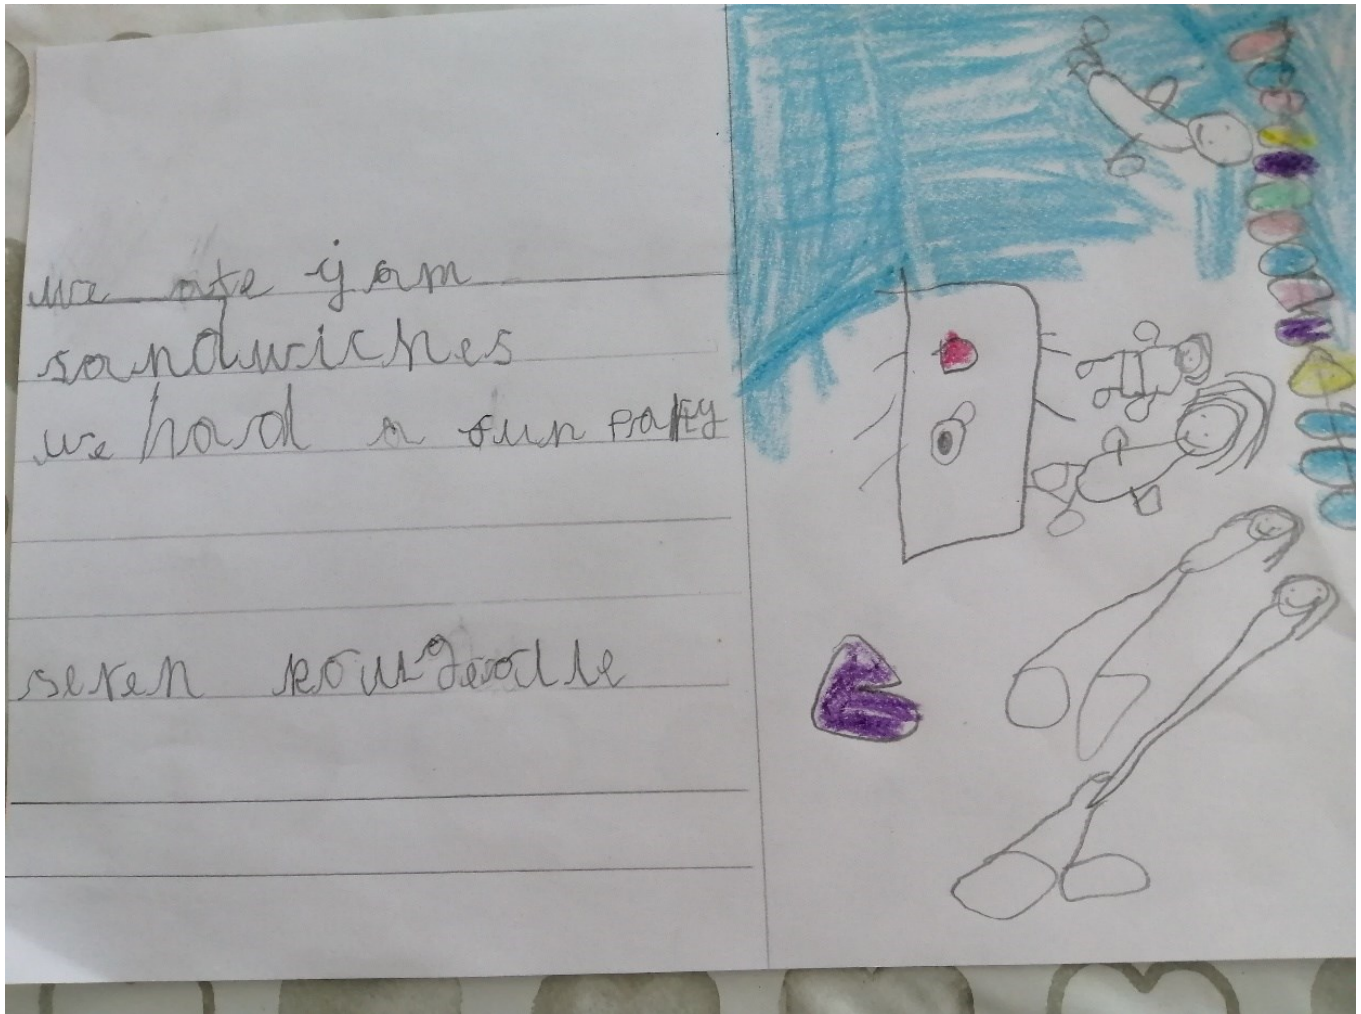 we ate jam
sandwiches
we had a fun party
seven